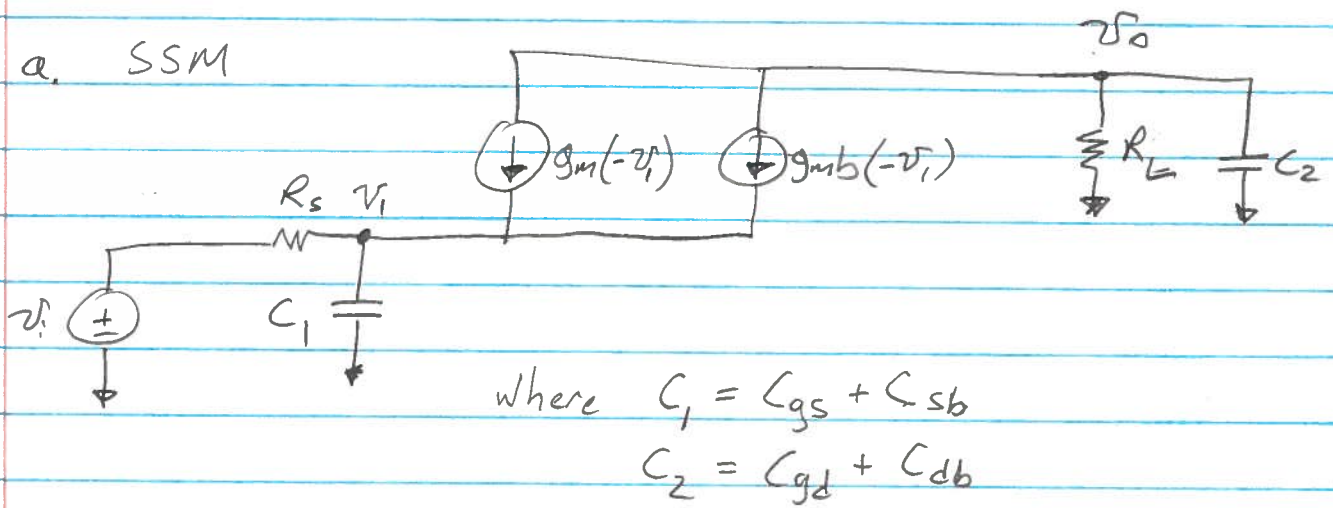 a. SSM
v₀
gm(-v₁)
gmb(-v₁)
R_L
C₂
Rs
v₁
vᵢ
±
C₁
where C₁ = Cgs + Csb
C₂ = Cgd + Cdb